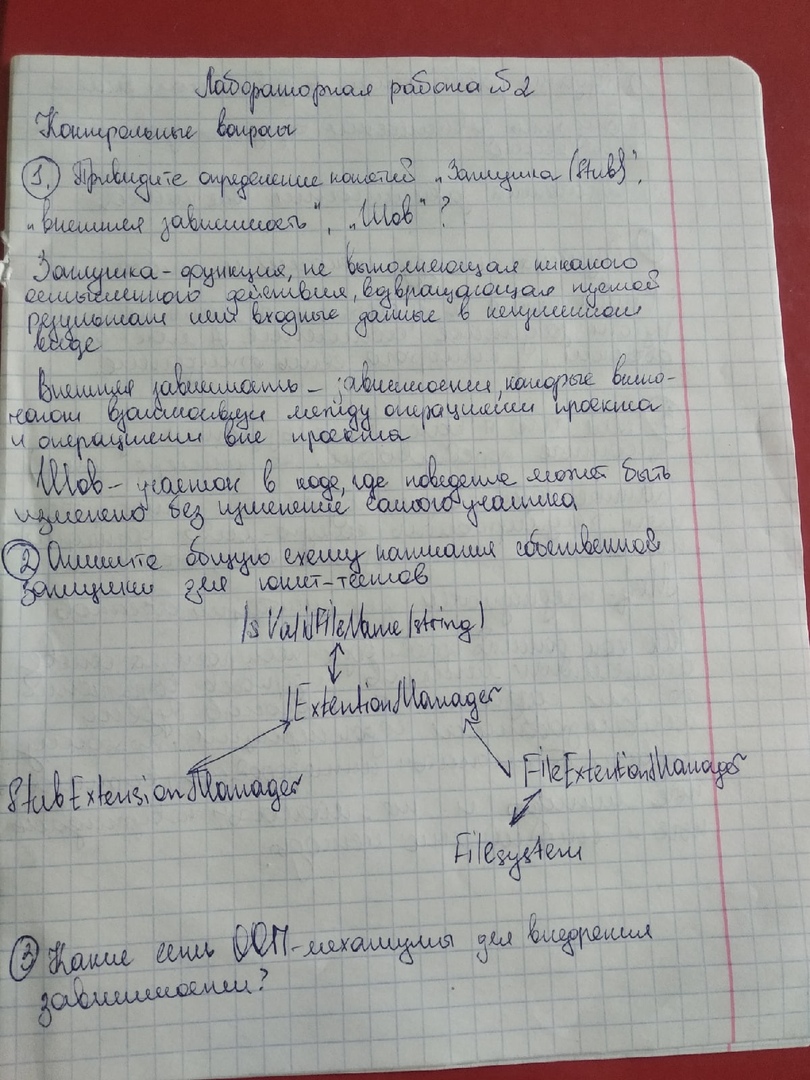 Лабораторная работа №2
Контрольные вопросы
1. Приведите определение понятий „Заглушка (Stub)",
„внешняя зависимость", „Шов"?
Заглушка - функция, не выполняющая никакого
осмысленного действия, возвращающая пустой
результат или входные данные в неизменном
виде
Внешняя зависимость - зависимости, которые
взаимосвязи между операциями проекта
и операциями вне проекта
Шов - участок в коде, где поведение может быть
изменено без изменение самого участка
2 Опишите общую схему написания собственной
заглушки для юнит-тестов
IsValidFileName(string)
IExtentionManager
FileExtentionManager
StubExtensionManager
Filesystem
3 Какие есть ООП-механизмы для внедрения
зависимости?